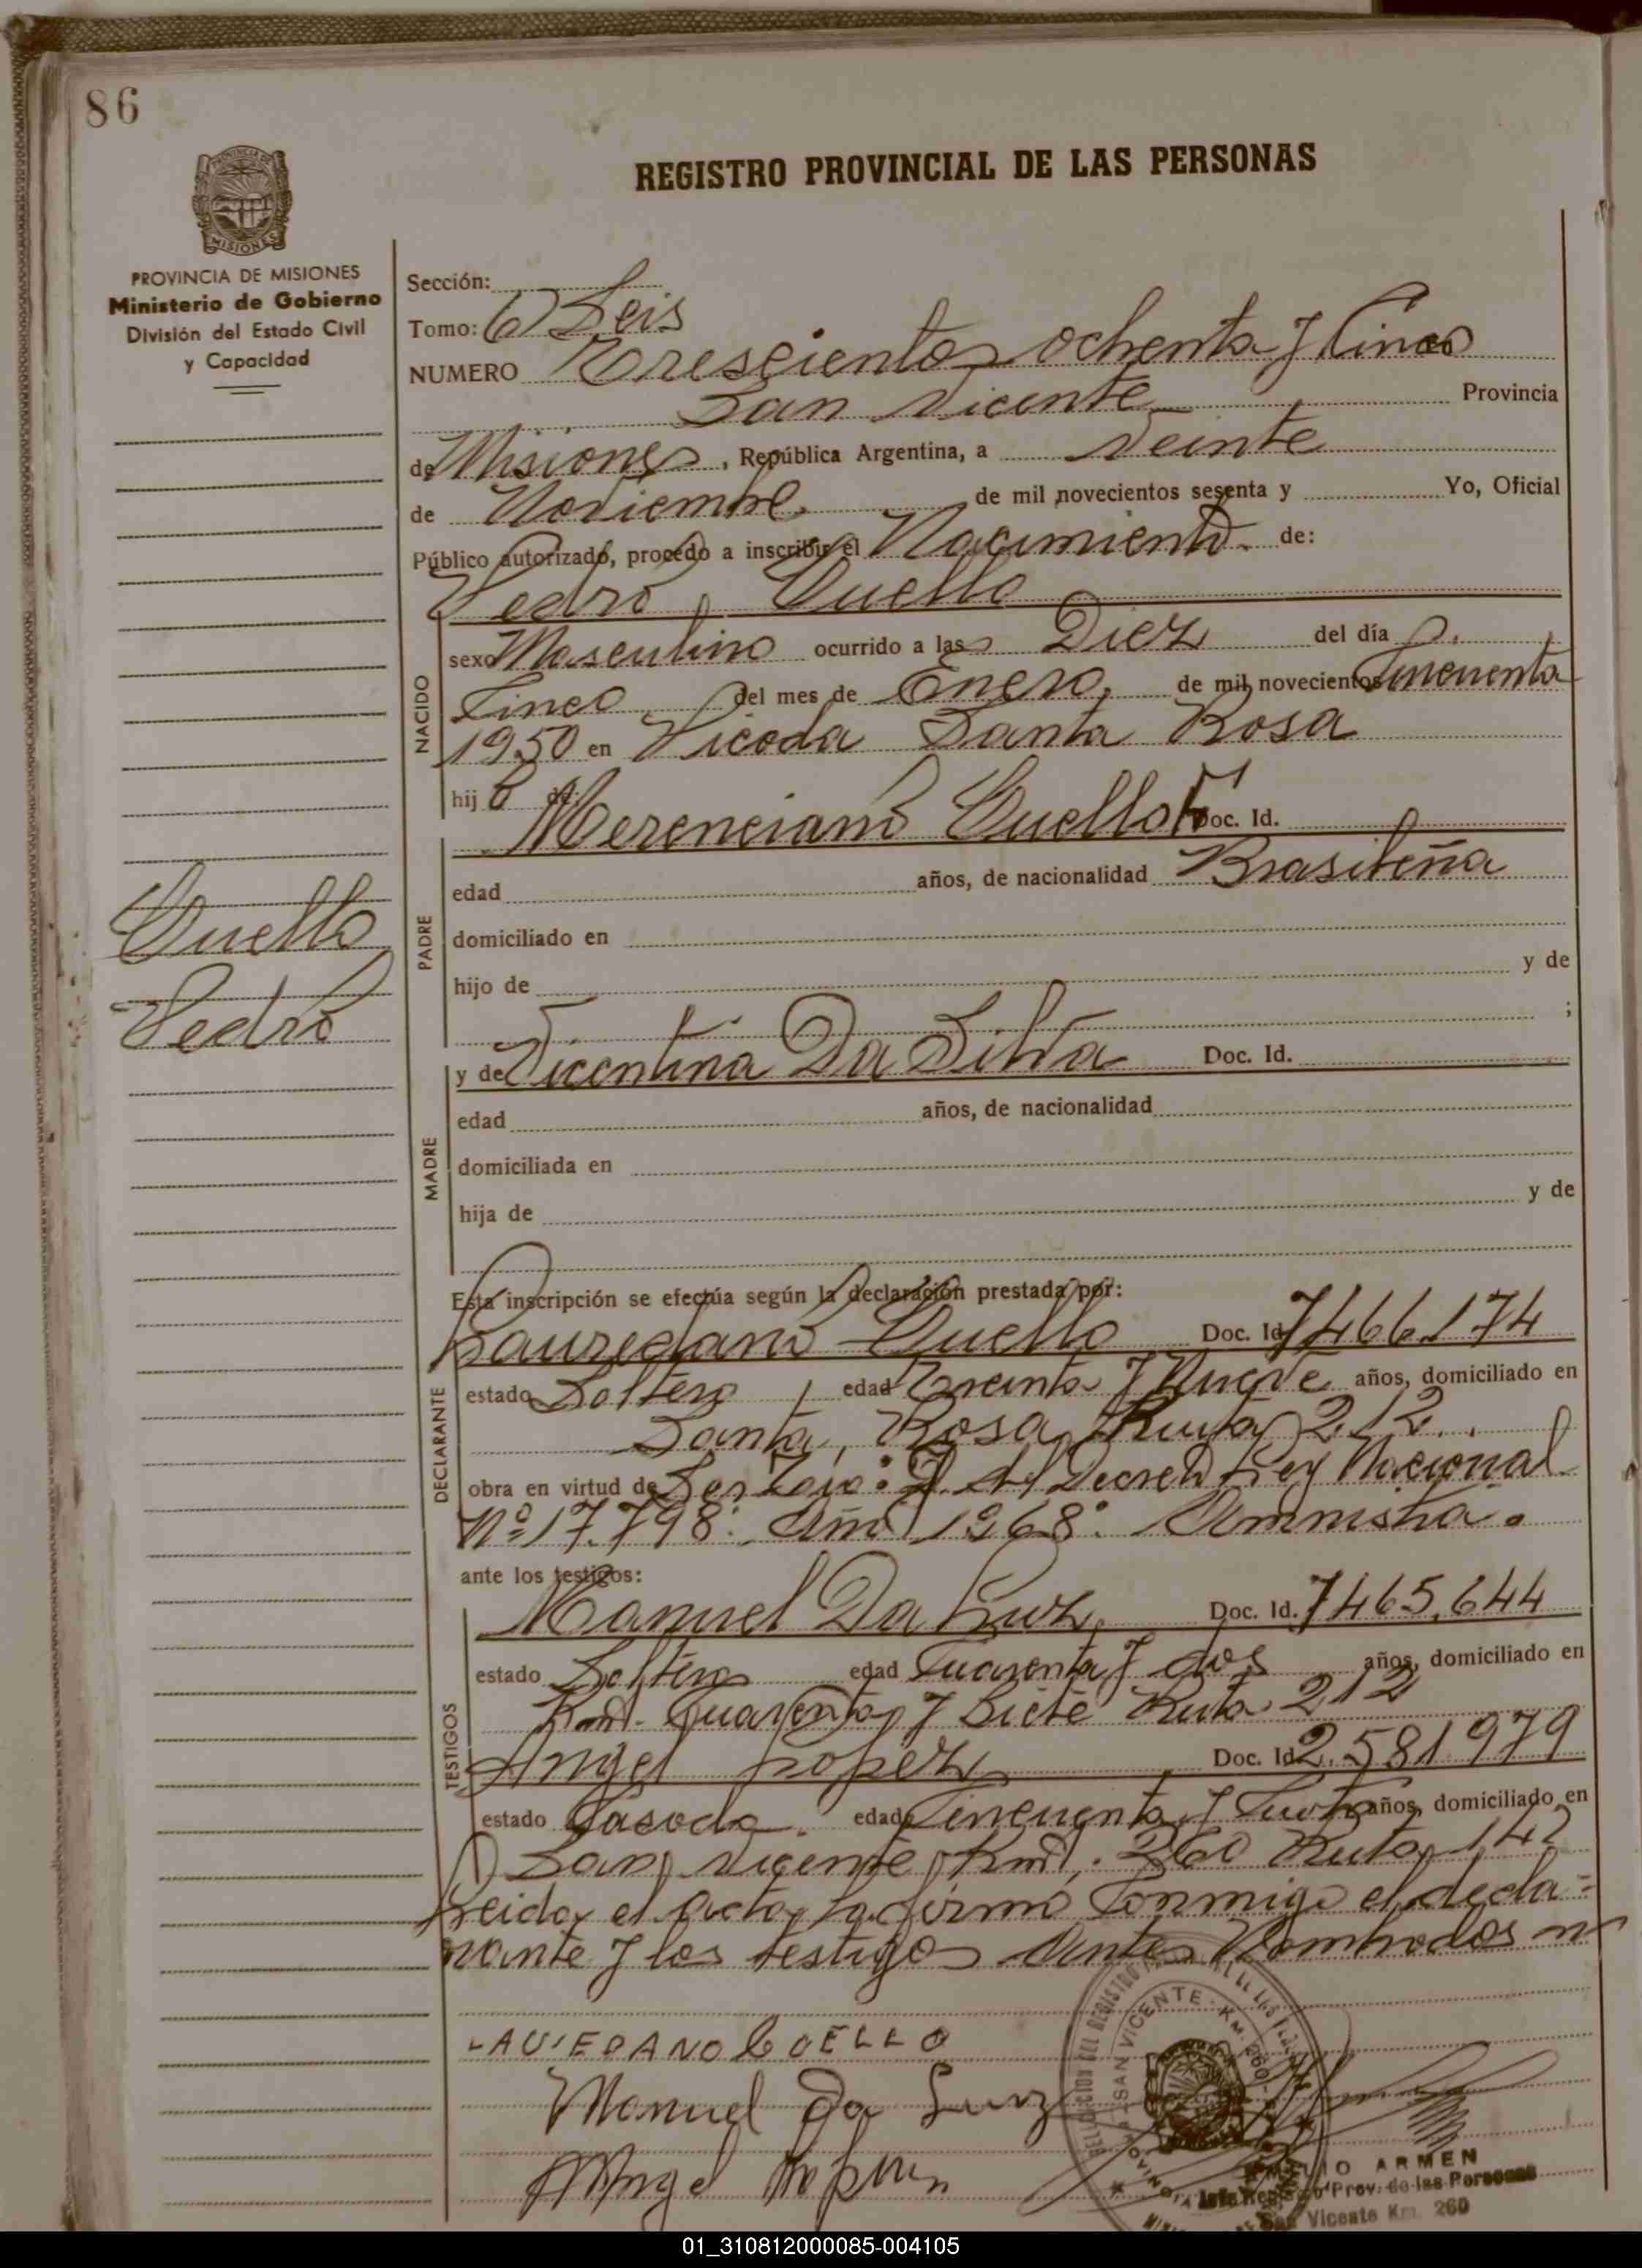 86
REGISTRO PROVINCIAL DE LAS PERSONAS
PROVINCIA DE MISIONES
Ministerio de Gobierno
División del Estado Civil
y Capacidad
Sección:
Tomo: 6) Seis
NUMERO Trescientos ochenta y Cinco
San Vicente Provincia
de Misiones, República Argentina, a Veinte
de Noviembre de mil novecientos sesenta y Yo, Oficial
Público autorizado, procedo a inscribir el Nacimiento de:
Pedro Cuello
NACIDO
sexo Masculino ocurrido a las Diez del día
Cinco del mes de Enero, de mil novecientos Cincuenta
1950 en Picada Santa Rosa
hij o de:
PADRE
Merenciano Cuello Doc. Id.
edad años, de nacionalidad Brasileña
domiciliado en
hijo de y de
;
Cuello
Pedro
MADRE
y de Vicentina Da Silva Doc. Id.
edad años, de nacionalidad
domiciliada en
hija de y de
Esta inscripción se efectúa según la declaración prestada por:
DECLARANTE
Lauredano Cuello Doc. Id. 7466.174
estado Soltero, edad Treinta y Nueve años, domiciliado en
Santa Rosa Ruta 212.
obra en virtud de Decreto Ley Nacional
Nº 17.798: Año 1968: Amnistia.
ante los testigos:
TESTIGOS
Manuel Da Luz, Doc. Id. 7465,644
estado Soltero edad Cuarenta y dos años, domiciliado en
Km. Cuarenta y Siete Ruta 212
Angel Lopez Doc. Id. 2.581979
estado Casado. edad Cincuenta y años, domiciliado en
San Vicente Km. 260 Ruta 142
Leida el acta, la firma Conmigo el decla=
rante y los testigos Antes Nombrados
LAUREDANO CUELLO
Manuel Da Luz
Angel
DELEGACION DEL REGISTRO
SAN VICENTE - KM. 260
ARMEN
Jefe Registro Prov. de las Personas
San Vicente Km. 260
01_310812000085-004105